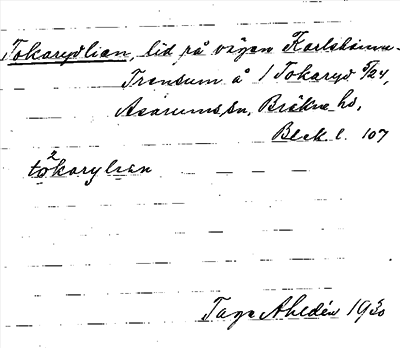 Tokarydlian, lid på vägen Karlshamn-
Trensum å 1 Tokaryd 5/24,
Asarums sn, Bräkne hd,
Blek. l. 107
tokarylian
Tage Ahldén 1930